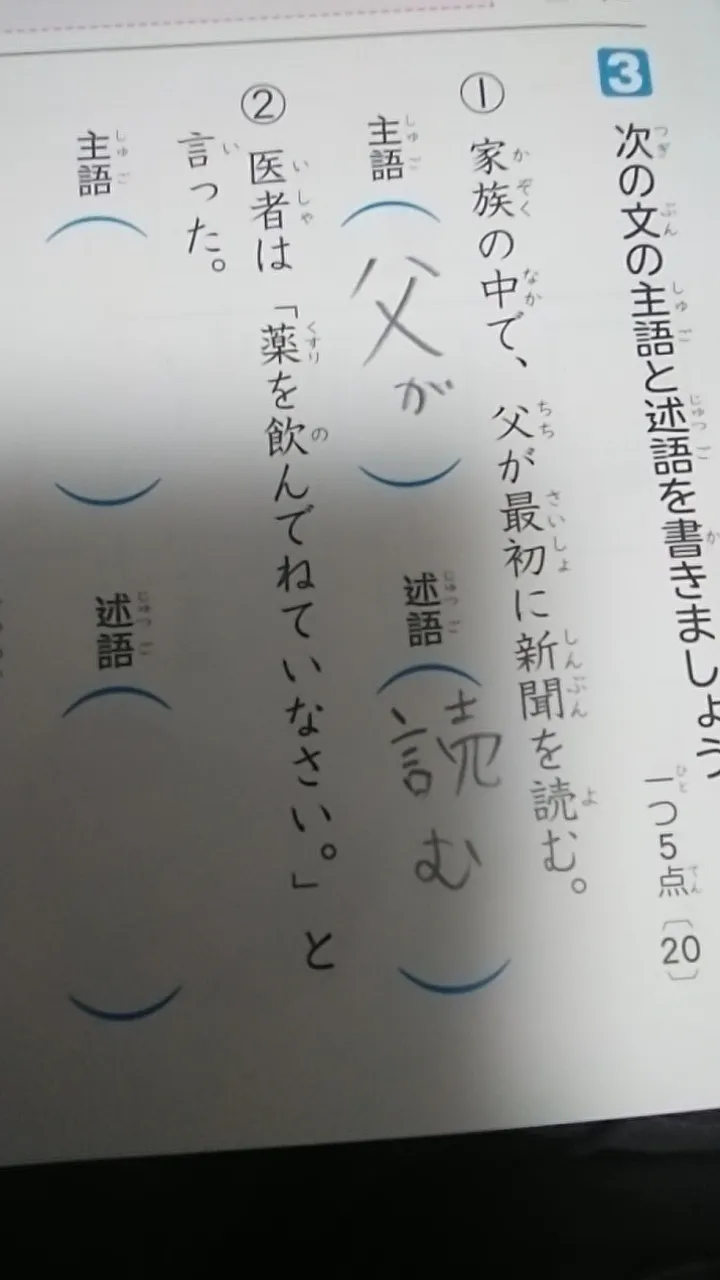 3 次の文の主語と述語を書きましょう
一つ5点〔20〕
① 家族の中で、父が最初に新聞を読む。
主語（父が）述語（読む）
② 医者は「薬を飲んでねていなさい。」と
言った。
主語（　　）述語（　　）